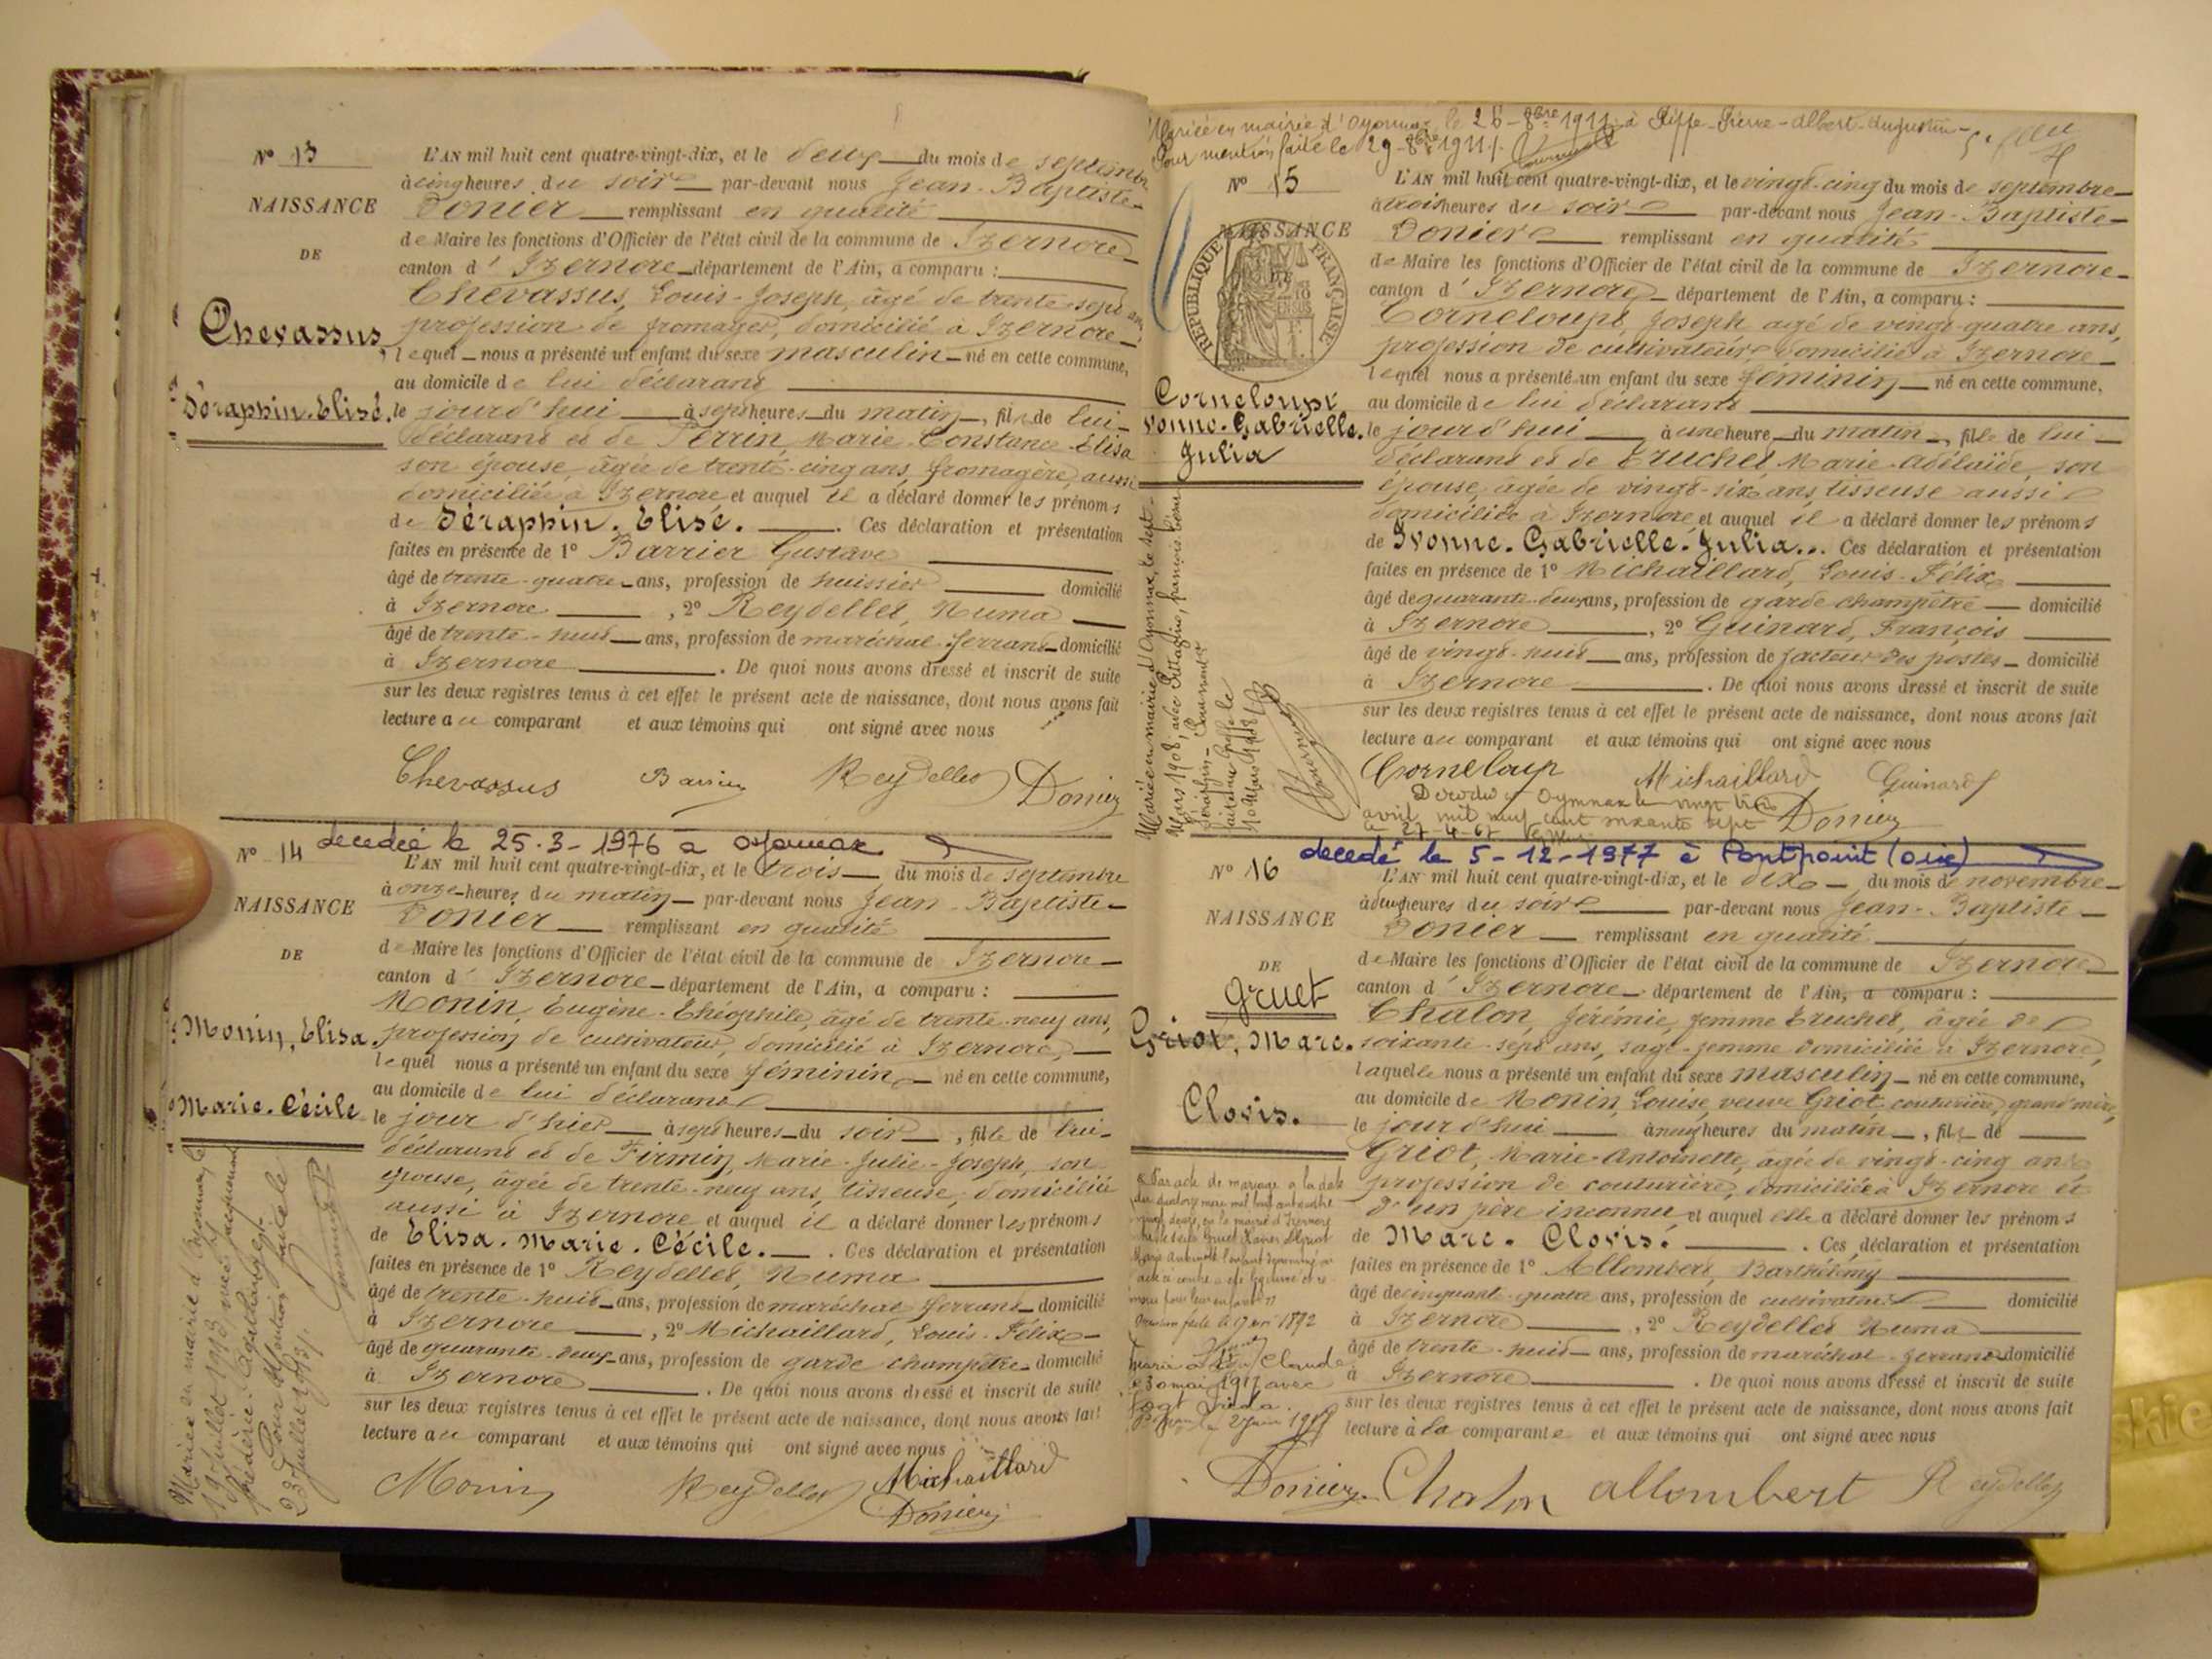 N° 13
NAISSANCE
DE
Chevassus
Séraphin. Elisé.
L'AN mil huit cent quatre-vingt-dix, et le deux du mois de septembre
à cinq heures du soir par-devant nous Jean-Baptiste
Donier remplissant en qualité
de Maire les fonctions d'Officier de l'état civil de la commune de Izernore
canton d' Izernore département de l'Ain, a comparu :
Chevassus, Louis-Joseph, âgé de trente-sept ans,
profession de fromager, domicilié à Izernore
lequel nous a présenté un enfant du sexe masculin né en cette commune,
au domicile de lui déclarant
le jourd'hui à sept heures du matin, fils de lui
déclarant et de Perrin, Marie-Constance-Elisa
son épouse, âgée de trente-cinq ans, fromagère, aussi
domiciliée à Izernore et auquel il a déclaré donner les prénoms
de Séraphin. Elisé. Ces déclaration et présentation
faites en présence de 1° Barrier Gustave
âgé de trente-quatre ans, profession de huissier domicilié
à Izernore, 2° Reydellet, Numa
âgé de trente-huit ans, profession de maréchal-ferrant domicilié
à Izernore. De quoi nous avons dressé et inscrit de suite
sur les deux registres tenus à cet effet le présent acte de naissance, dont nous avons fait
lecture au comparant et aux témoins qui ont signé avec nous
Chevassus Barrier Reydellet Donier
decedée le 25-3-1976 à Oyonnax
N° 14
NAISSANCE
DE
Monin, Elisa
Marie. Cécile
L'AN mil huit cent quatre-vingt-dix, et le trois du mois de septembre
à onze heures du matin par-devant nous Jean-Baptiste
Donier remplissant en qualité
de Maire les fonctions d'Officier de l'état civil de la commune de Izernore
canton d' Izernore département de l'Ain, a comparu :
Monin, Eugène-Théophile, âgé de trente-neuf ans,
profession de cultivateur, domicilié à Izernore,
lequel nous a présenté un enfant du sexe féminin, né en cette commune,
au domicile de lui déclarant
le jour d'hier à sept heures du soir, fille de lui
déclarant et de Firmin, Marie-Julie-Joseph, son
épouse, âgée de trente-neuf ans, tisseuse, domiciliée
aussi à Izernore et auquel il a déclaré donner les prénoms
de Elisa. Marie. Cécile. Ces déclaration et présentation
faites en présence de 1° Reydellet, Numa
âgé de trente-huit ans, profession de maréchal ferrant domicilié
à Izernore, 2° Michaillard, Louis-Félix
âgé de quarante-deux ans, profession de garde champêtre domicilié
à Izernore. De quoi nous avons dressé et inscrit de suite
sur les deux registres tenus à cet effet le présent acte de naissance, dont nous avons fait
lecture au comparant et aux témoins qui ont signé avec nous
Monin Reydellet Michaillard
Donier
Mariée en mairie d'Oyonnax le
19 Juillet 1913 avec
Frédéric
Pour Mention faite le
23 Juillet 1913
Mariée en mairie d'Oyonnax le 26-8bre 1911 à Piffe-Pierre-Albert-Augustin
Pour mention faite le 29-8bre 1911
N° 15
NAISSANCE
DE
RÉPUBLIQUE FRANÇAISE
Corneloup
Yvonne. Gabrielle.
Julia
L'AN mil huit cent quatre-vingt-dix, et le vingt-cinq du mois de septembre
à trois heures du soir par-devant nous Jean-Baptiste
Donier remplissant en qualité
de Maire les fonctions d'Officier de l'état civil de la commune de Izernore
canton d' Izernore département de l'Ain, a comparu :
Corneloup, Joseph, âgé de vingt-quatre ans,
profession de cultivateur domicilié à Izernore
lequel nous a présenté un enfant du sexe féminin né en cette commune,
au domicile de lui déclarant
le jourd'hui à une heure du matin, fille de lui
déclarant et de Truchet Marie-Adélaïde, son
épouse, âgée de vingt-six ans, tisseuse aussi
domiciliée à Izernore et auquel il a déclaré donner les prénoms
de Yvonne. Gabrielle. Julia... Ces déclaration et présentation
faites en présence de 1° Michaillard, Louis-Félix
âgé de quarante-deux ans, profession de garde champêtre domicilié
à Izernore, 2° Guinard, François
âgé de vingt-huit ans, profession de facteur des postes domicilié
à Izernore. De quoi nous avons dressé et inscrit de suite
sur les deux registres tenus à cet effet le présent acte de naissance, dont nous avons fait
lecture au comparant et aux témoins qui ont signé avec nous
Corneloup Michaillard Guinard
Décédée à Oyonnax le vingt trois
avril mil neuf cent soixante sept Donier
le 27-4-67
Mariée en mairie d'Oyonnax, le sept
Mars 1908, avec
10 Mars 1908
decedé le 5-12-1977 à Pontpoint (Oise)
N° 16
NAISSANCE
DE
Gruet
Griot, Marc.
Clovis.
L'AN mil huit cent quatre-vingt-dix, et le dix du mois de novembre
à deux heures du soir par-devant nous Jean-Baptiste
Donier remplissant en qualité
de Maire les fonctions d'Officier de l'état civil de la commune de Izernore
canton d' Izernore département de l'Ain, a comparu :
Chalon, Jérémie, femme Truchet, âgée de
soixante-sept ans, sage-femme domiciliée à Izernore,
laquelle nous a présenté un enfant du sexe masculin né en cette commune,
au domicile de Monin, Louise, veuve Griot, couturière, grand'mère,
le jourd'hui à neuf heures du matin, fils de
Griot, Marie-Antoinette, âgée de vingt-cinq ans
profession de couturière, domiciliée à Izernore et
d'un père inconnu et auquel elle a déclaré donner les prénoms
de Marc. Clovis. Ces déclaration et présentation
faites en présence de 1° Allombert, Barthélemy
âgé de cinquante-quatre ans, profession de cultivateur domicilié
à Izernore, 2° Reydellet Numa
âgé de trente-huit ans, profession de maréchal-ferrant domicilié
à Izernore. De quoi nous avons dressé et inscrit de suite
sur les deux registres tenus à cet effet le présent acte de naissance, dont nous avons fait
lecture à la comparante et aux témoins qui ont signé avec nous
Donier Chalon allombert Reydellet
Par acte de mariage à la date
Marié à St Claude
le 30 mai 1917 avec
2 Juin 1917